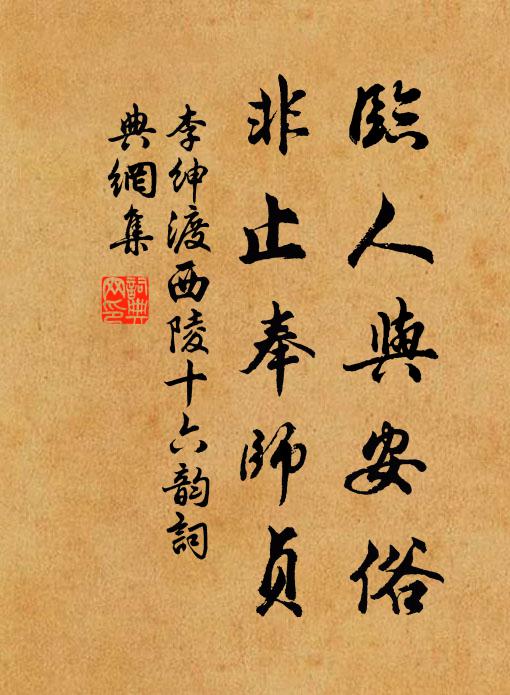 臨人與安俗
非止奉師貞
李紳渡西陵十六韵詞
典網集
詞典
网印